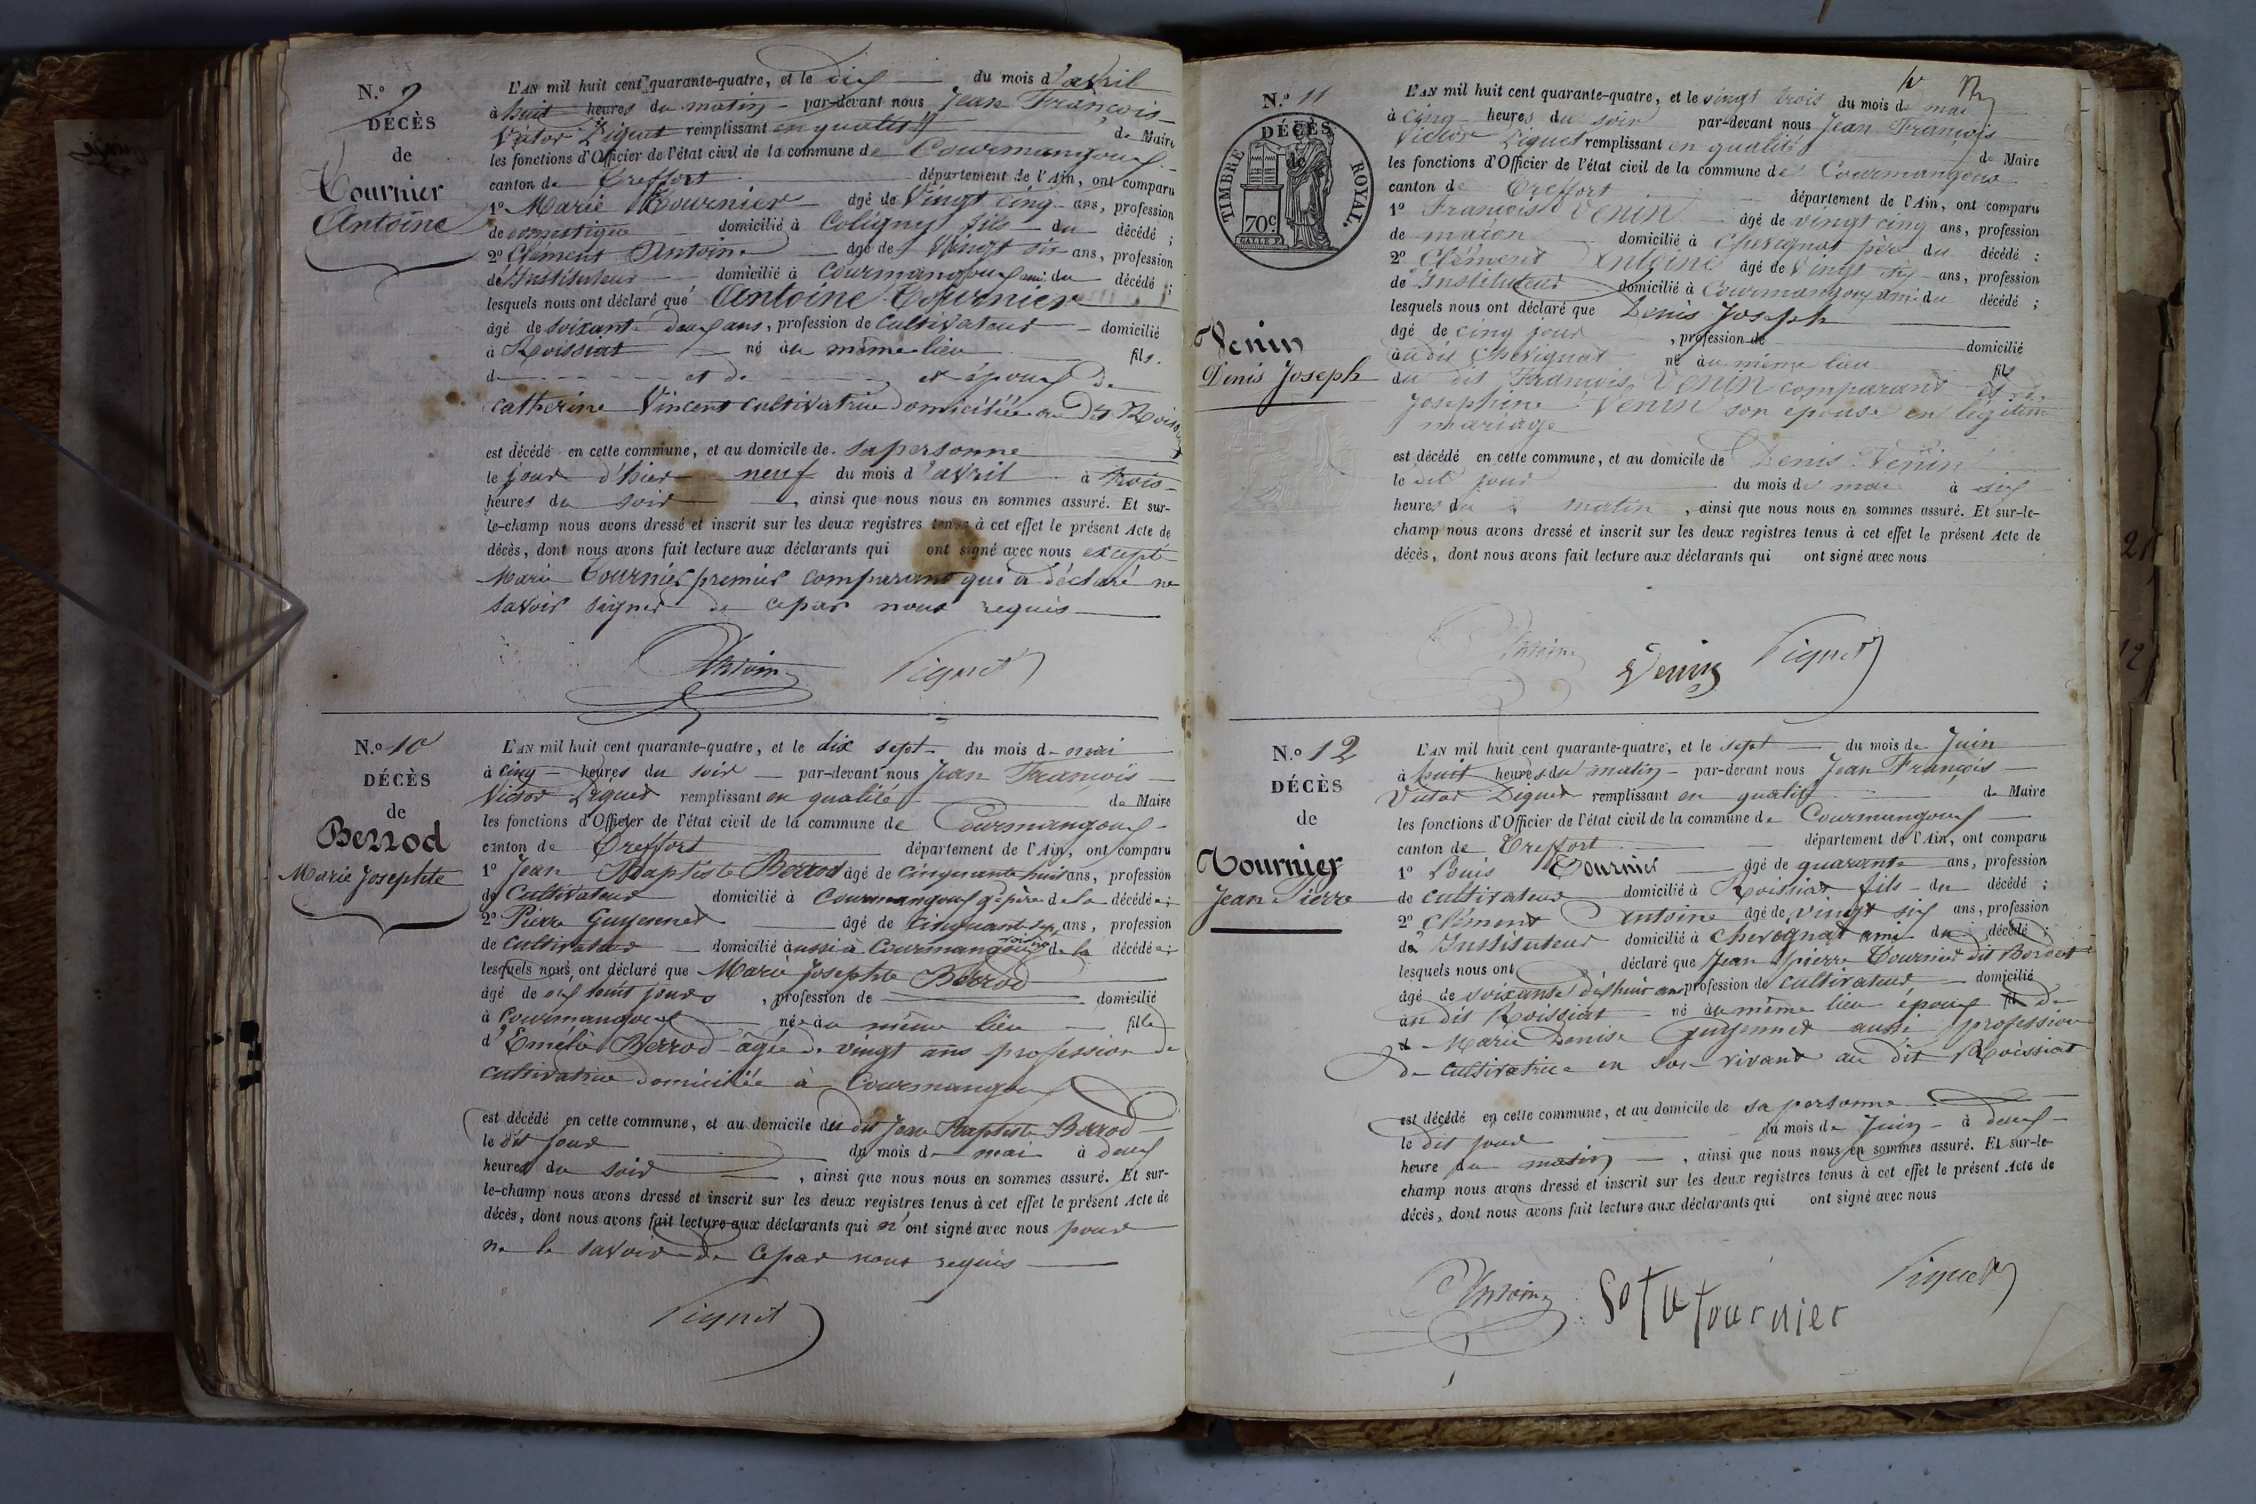 N.o 9
DÉCÈS
de
Tournier
Antoine
L'AN mil huit cent quarante-quatre, et le dix du mois d'avril
à huit heures du matin par-devant nous Jean François
Victor Piquet remplissant en qualité de Maire
les fonctions d'Officier de l'état civil de la commune de Courmangoux
canton de Treffort département de l'Ain, ont comparu
1o Marie Tournier âgé de vingt cinq ans, profession
de domestique domicilié à Coligny fils du décédé;
2o Clément Antoine âgé de vingt six ans, profession
de Instituteur domicilié à Courmangoux ami du décédé;
lesquels nous ont déclaré que Antoine Tournier
âgé de soixante deux ans, profession de cultivateur domicilié
à Roissiat né au même lieu fils
d et de et époux de
Catherine Vincent cultivatrice domiciliée au dit Roissiat
est décédé en cette commune, et au domicile de sa personne
le jour d'hier neuf du mois d'avril à trois
heures du soir, ainsi que nous nous en sommes assuré. Et sur-
le-champ nous avons dressé et inscrit sur les deux registres tenus à cet effet le présent Acte de
décès, dont nous avons fait lecture aux déclarants qui ont signé avec nous excepté
Marie Tournier premier comparant qui a déclaré ne
savoir signer de ce par nous requis
Antoine Piquet
N.o 10
DÉCÈS
de
Berrod
Marie Josephte
L'AN mil huit cent quarante-quatre, et le dix sept du mois de mai
à cinq heures du soir par-devant nous Jean François
Victor Piquet remplissant en qualité de Maire
les fonctions d'Officier de l'état civil de la commune de Courmangoux
canton de Treffort département de l'Ain, ont comparu
1o Jean Baptiste Berrod âgé de cinquante huit ans, profession
de Cultivateur domicilié à Courmangoux g.père de la décédée;
2o Pierre Guyennet âgé de cinquante sept ans, profession
de cultivateur domicilié aussi à Courmangoux voisin de la décédée;
lesquels nous ont déclaré que Marie Josephte Berrod
âgé de dix huit jours, profession de domicilié
à Courmangoux née au même lieu fille
d'Emélie Berrod âgée de vingt ans profession de
cultivatrice domiciliée à Courmangoux
est décédé en cette commune, et au domicile du dit Jean Baptiste Berrod
le dit jour du mois de mai à deux
heures du soir, ainsi que nous nous en sommes assuré. Et sur-
le-champ nous avons dressé et inscrit sur les deux registres tenus à cet effet le présent Acte de
décès, dont nous avons fait lecture aux déclarants qui n'ont signé avec nous pour
ne le savoir de ce par nous requis
Piquet
N.o 11
DÉCÈS
de
TIMBRE ROYAL.
70c
Venin
Denis Joseph
L'AN mil huit cent quarante-quatre, et le vingt trois du mois de mai
à cinq heures du soir par-devant nous Jean François
Victor Piquet remplissant en qualité de Maire
les fonctions d'Officier de l'état civil de la commune de Courmangoux
canton de Treffort département de l'Ain, ont comparu
1o François Venin âgé de vingt cinq ans, profession
de maçon domicilié à Chevignat père du décédé:
2o Clément Antoine âgé de vingt six ans, profession
de Instituteur domicilié à Courmangoux ami du décédé;
lesquels nous ont déclaré que Denis Joseph
âgé de cinq jour, profession de domicilié
au dit Chevignat né au même lieu fils
du dit François Venin comparant et de
Josephine Venin son épouse en légitime
mariage
est décédé en cette commune, et au domicile de Denis Venin
le dit jour du mois de mai à six
heures du matin, ainsi que nous nous en sommes assuré. Et sur-le-
champ nous avons dressé et inscrit sur les deux registres tenus à cet effet le présent Acte de
décès, dont nous avons fait lecture aux déclarants qui ont signé avec nous
Antoine Venin Piquet
N.o 12
DÉCÈS
de
Tournier
Jean Pierre
L'AN mil huit cent quarante-quatre, et le sept du mois de Juin
à huit heures du matin par-devant nous Jean François
Victor Piquet remplissant en qualité de Maire
les fonctions d'Officier de l'état civil de la commune de Courmangoux
canton de Treffort département de l'Ain, ont comparu
1o Louis Tournier âgé de quarante ans, profession
de cultivateur domicilié à Roissiat fils du décédé;
2o Clément Antoine âgé de vingt six ans, profession
de Instituteur domicilié à Chevignat ami du décédé;
lesquels nous ont déclaré que Jean pierre Tournier dit Bordet
âgé de soixante dix huit ans profession de cultivateur domicilié
au dit Roissiat né au même lieu époux de
Marie Denise Guyennet aussi profession
de cultivatrice en son vivant au dit Roissiat
est décédé en cette commune, et au domicile de sa personne
le dit jour du mois de Juin à deux
heure du matin, ainsi que nous nous en sommes assuré. Et sur-le-
champ nous avons dressé et inscrit sur les deux registres tenus à cet effet le présent Acte de
décès, dont nous avons fait lecture aux déclarants qui ont signé avec nous
Antoine tournier Piquet